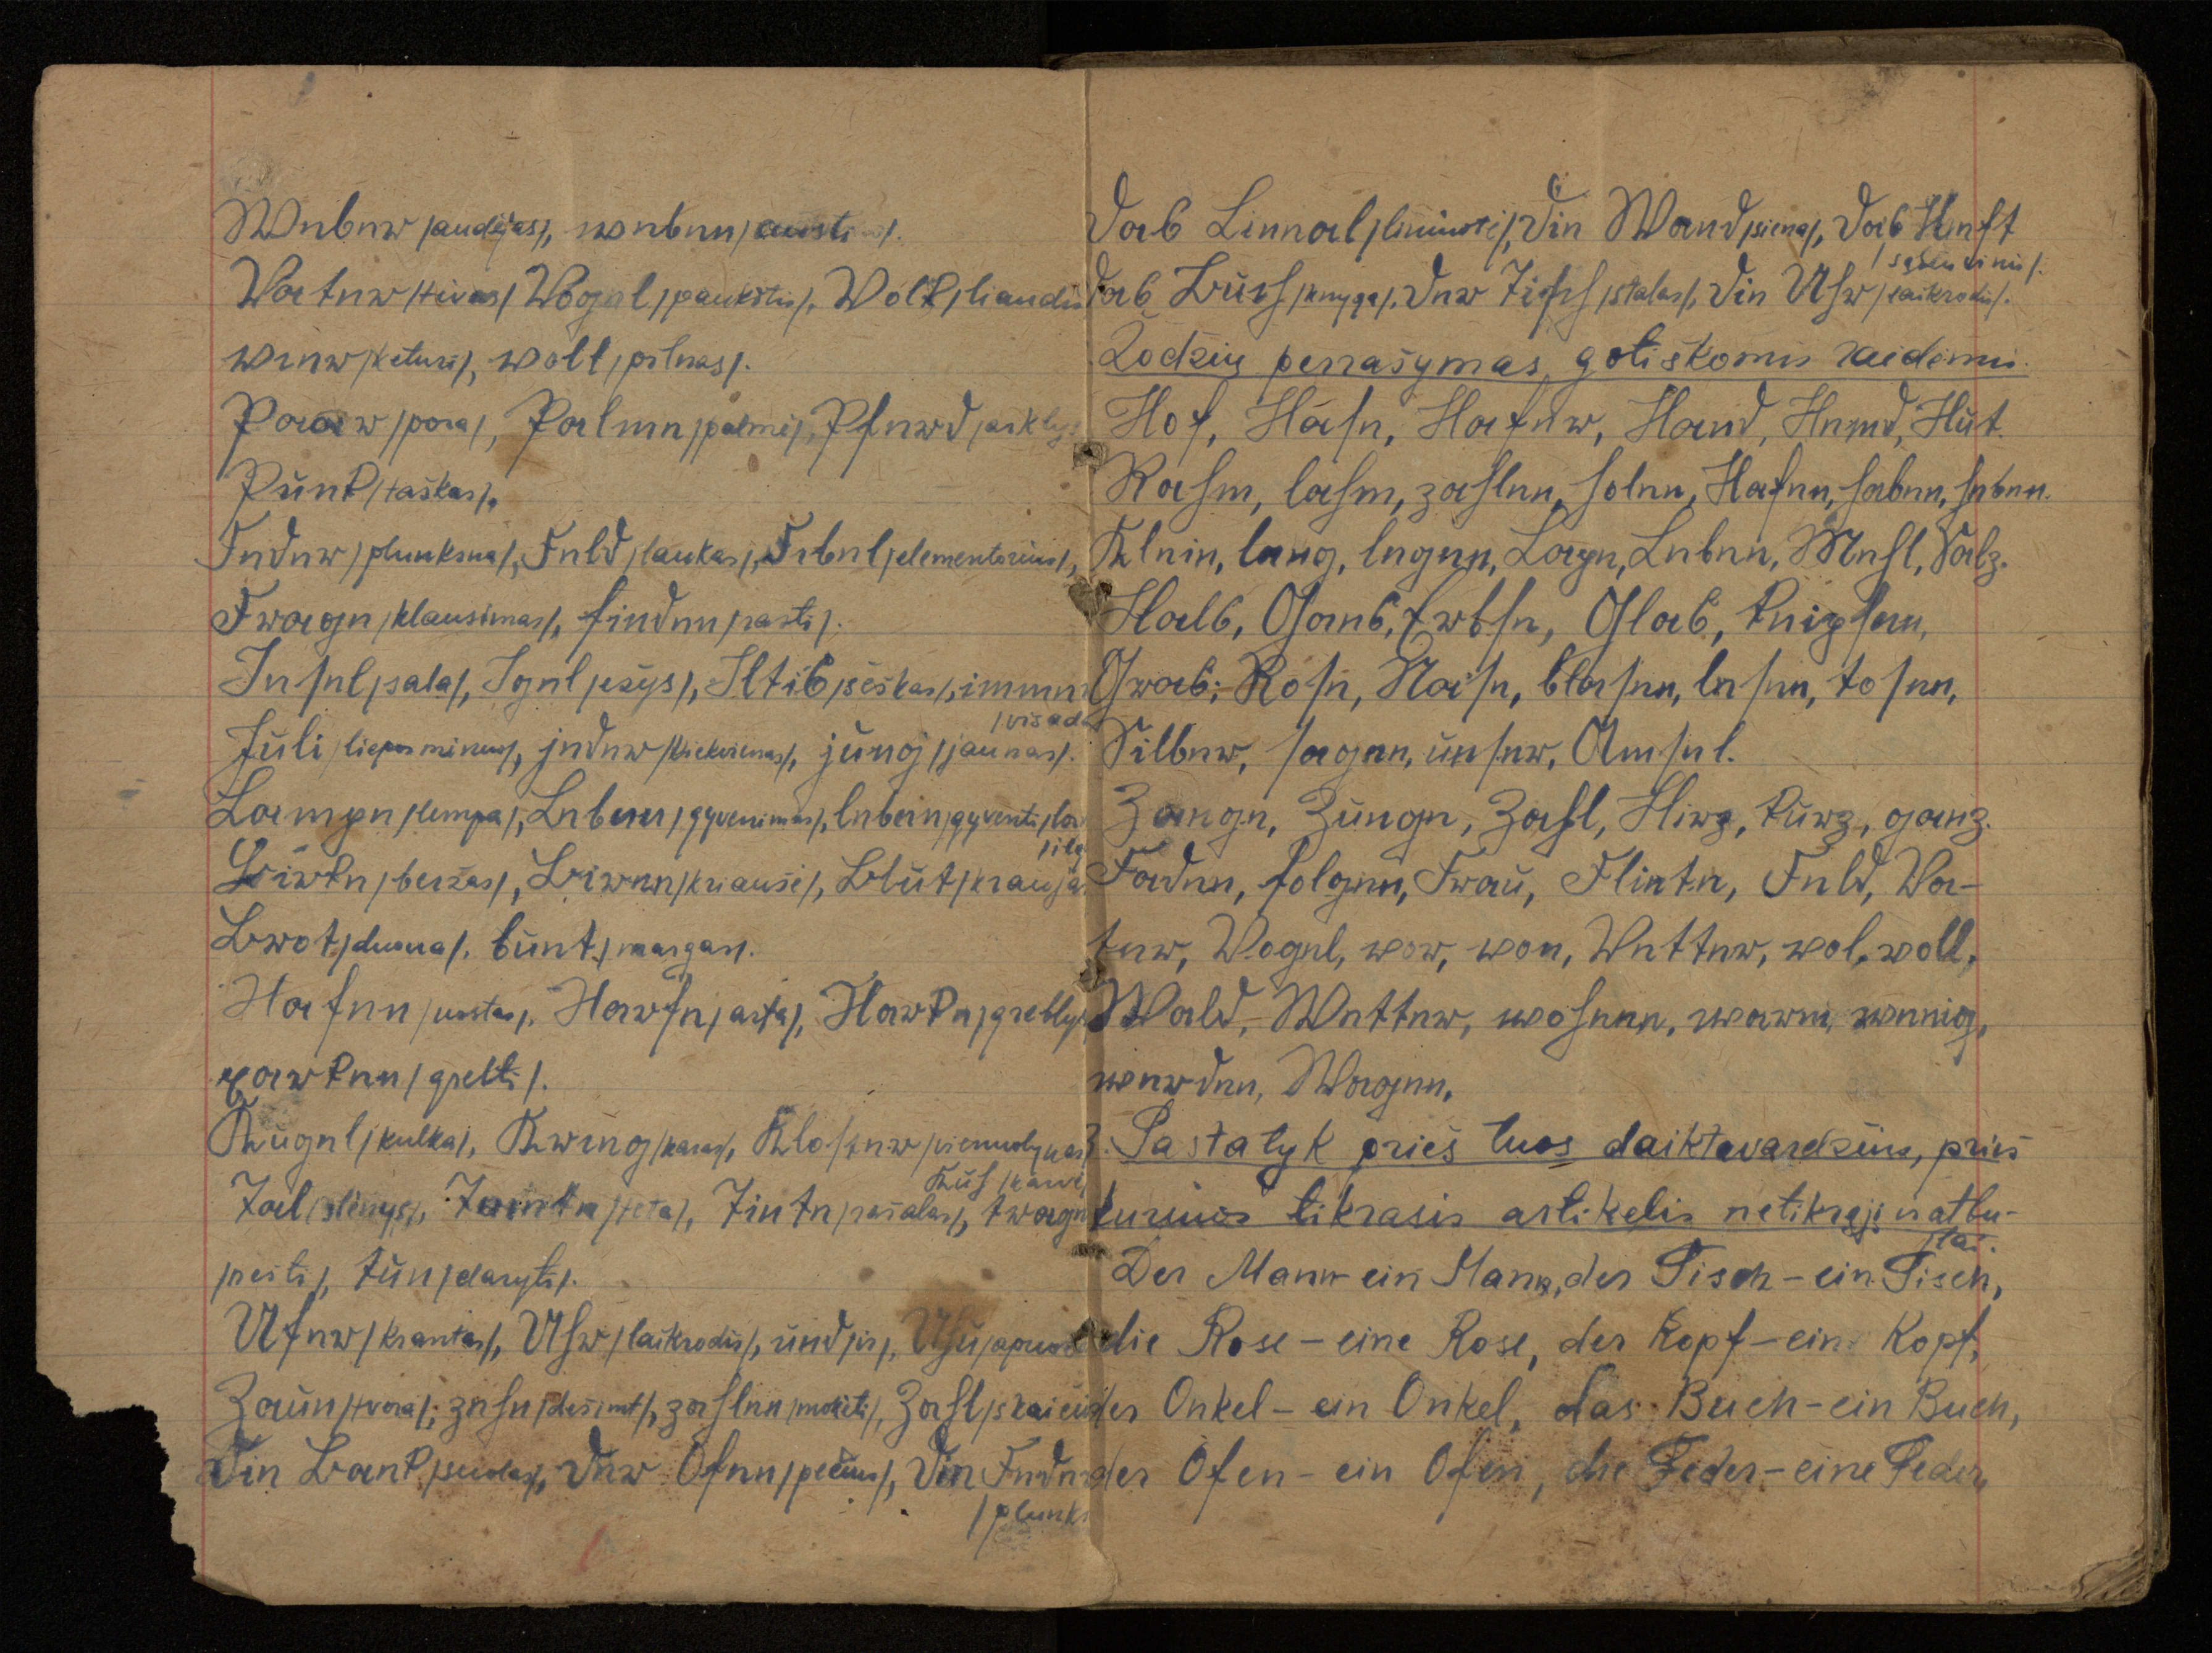 Weber /audėjas/, weben /austi/.
Vater /tėvas/ Vogel /paukštis/, Volk /liaudis
vier /keturi/, voll /pilnas/.
Paar /pora/, Palme /palmė/, Pferd /arklys
Punkt /taškas/.
Feder /plunksna/, Feld /laukas/, Fibel /elementorius/,
Frage /klausimas/, finden /rasti/.
Insel /sala/, Igel /ežys/, Iltis /šeškas/, immer
/visada
Juli /liepos mėnuo/, jeder /kiekvienas/, jung /jaunas/.
Lampe /lempa/, Leben /gyvenimas/, leben /gyventi/
Birke /beržas/, Birne /kriaušė/, Blut /kraujas
Brot /duona/, bunt /margas/.
Hafen /uostas/, Harfe /arfa/, Harke /grėblys
harken /grėbti/.
Kugel /kulka/, Krieg /karas/, Kloster /vienuolynas/
Kuh /karvė/
Tal /slėnys/, Tante /teta/, Tinte /rašalas/, tragen
/nešti/, tun /daryti/.
Ufer /krantas/, Uhr /laikrodis/, und /ir/, Uhu
Zaun /tvora/; zehn /dešimt/, zahlen /mokėti/, Zahl /skaičius
Die Bank /suolas/, der Ofen /pečius/, die Feder
/plunks
das Lineal /liniuotė/, die Wand /siena/, das Heft
/sąsiuvinis/.
das Buch /knyga/, der Tisch /stalas/, die Uhr /laikrodis/.
Žodžių perrašymas gotiškomis raidėmis.
Hof, Hase, Hafer, Hand, Hemd, Hut.
Rahm, lahm, zahlen, holen, Hafen, haben, heben.
Klein, lang, legen, Lage, Leben, Mehl, Salz.
Hals, Gans, Erbse, Glas,
Gras; Rose, Nase, blasen, lesen, tosen,
Silber, sagen, unser, Amsel.
Zange, Zunge, Zahl, Hirz, kurz, ganz.
Faden, folgen, Frau, Flinte, Feld, Va-
ter, Vogel, vor, von, Vetter, vol, voll,
Wald, Wetter, wohnen, warm, wenig,
werden, Wagen.
Pastatyk prieš tuos daiktavardžius, prieš
kuriuos tikrasis artikelis netikrąjį ir atbu-
lai.
Der Mann - ein Mann, der Tisch - ein Tisch,
die Rose - eine Rose, der Kopf - ein Kopf,
der Onkel - ein Onkel, das Buch - ein Buch,
der Ofen - ein Ofen, die Feder - eine Feder